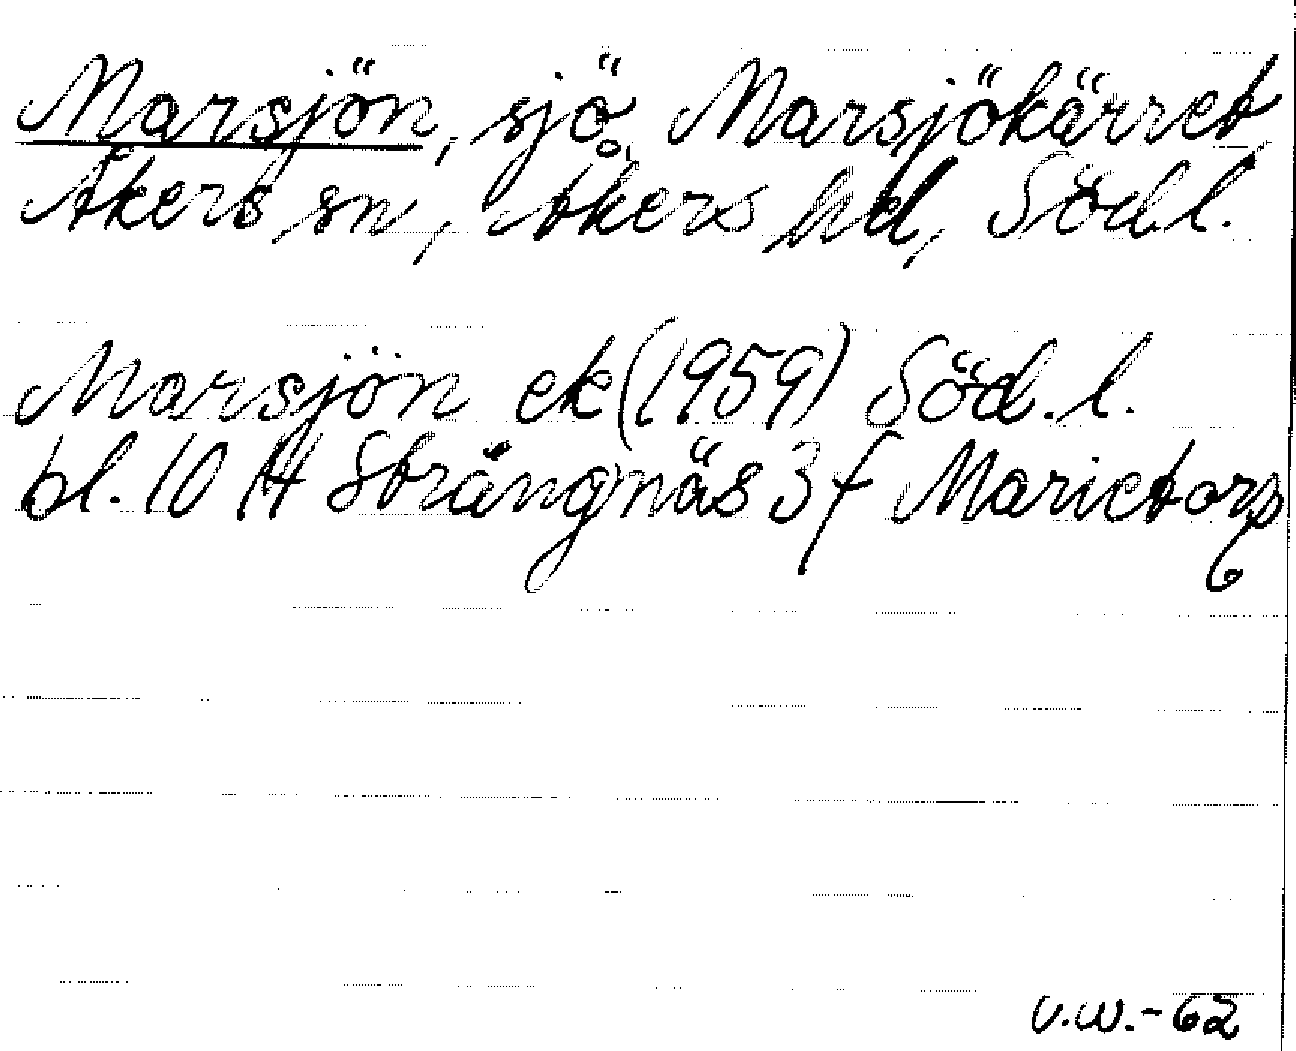 Marsjön, sjö, Marsjökärret
Åkers sn, Åkers hd, Södl.
Marsjön ek (1959) Söd. l.
bl. 10 H Strängnäs 3 f Marietorp
V.W.-62